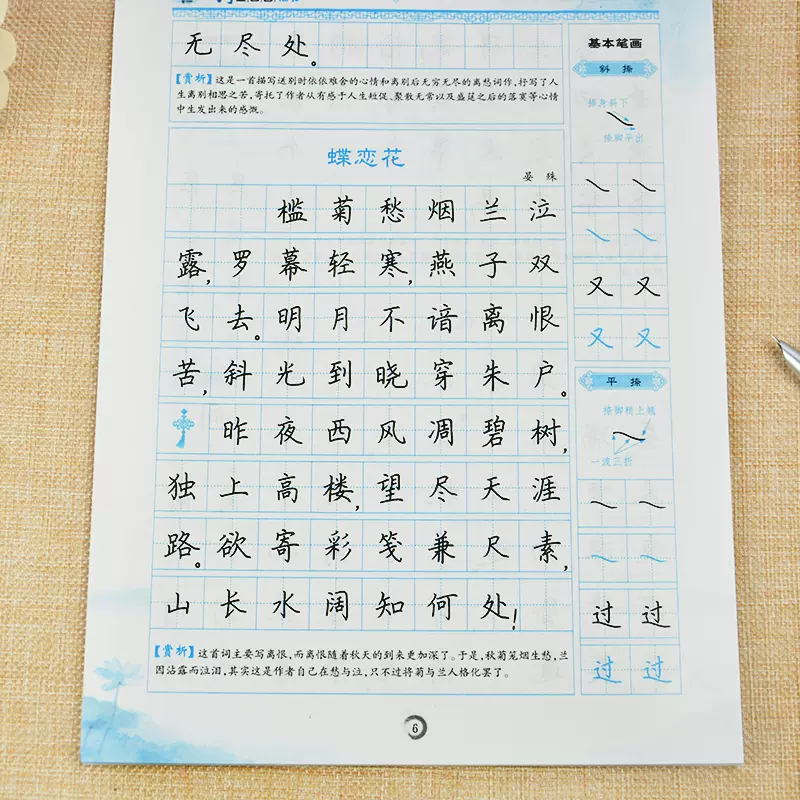 无尽处。
【赏析】这是一首描写送别时依依难舍的心情和离别后无穷无尽的离愁词作,抒写了人
生离别相思之苦,寄托了作者从有感于人生短促、聚散无常以及盛筵之后的落寞等心情
中生发出来的感慨。
蝶恋花
晏 殊
槛菊愁烟兰泣
露,罗幕轻寒,燕子双
飞去。明月不谙离恨
苦,斜光到晓穿朱户。
昨夜西风凋碧树,
独上高楼,望尽天涯
路。欲寄彩笺兼尺素,
山长水阔知何处!
【赏析】这首词主要写离恨,而离恨随着秋天的到来更加深了。于是,秋菊笼烟生愁,兰
因沾露而泣泪,其实这是作者自己在愁与泣,只不过将菊与兰人格化罢了。
6
基本笔画
斜 捺
捺身斜下
捺脚平出
又 又
又 又
平 捺
捺脚稍上翘
一波三折
过 过
过 过